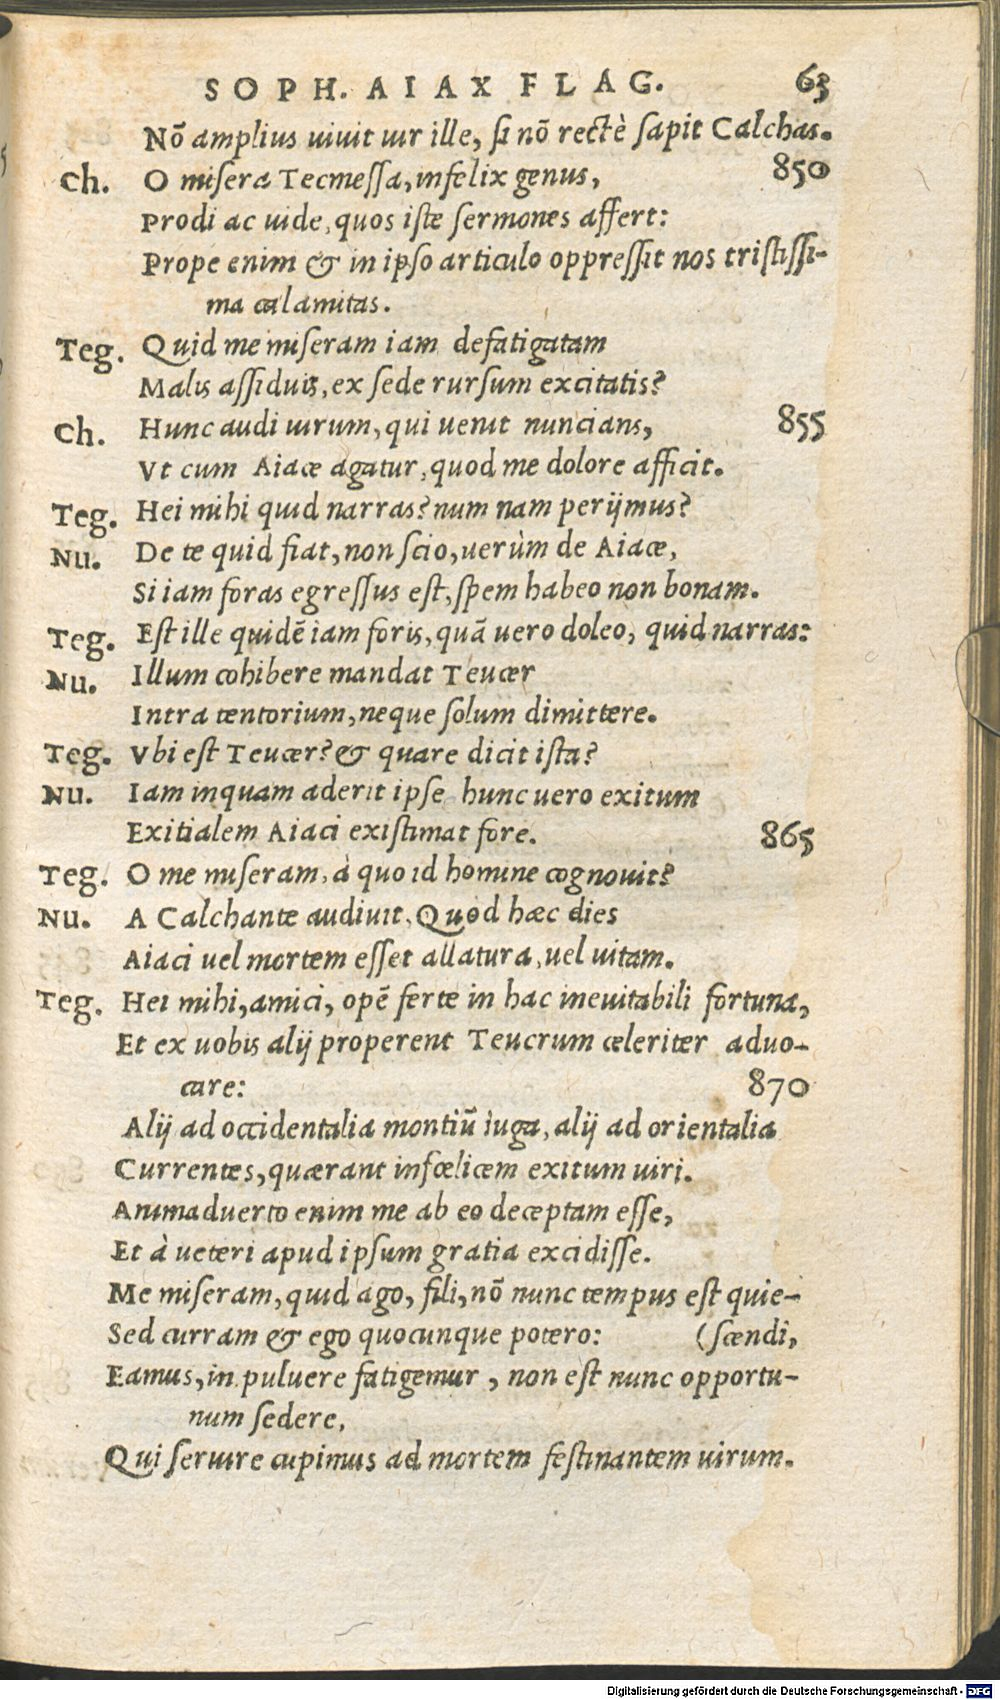 SOPH. AIAX FLAG. 63
Nõ amplius uiuit uir ille, si nõ rectè sapit Calchas.
Ch. O misera Tecmessa, infelix genus, 850
Prodi ac uide, quos iste sermones affert:
Prope enim & in ipso articulo oppressit nos tristissi-
ma calamitas.
Teg. Quid me miseram iam defatigatam
Malis assiduis, ex sede rursum excitatis?
Ch. Hunc audi uirum, qui uenit nuncians, 855
Vt cum Aiace agatur, quod me dolore afficit.
Teg. Hei mihi quid narras? num nam perijmus?
Nu. De te quid fiat, non scio, uerùm de Aiace,
Si iam foras egressus est, spem habeo non bonam.
Teg. Est ille quidẽ iam foris, quã uero doleo, quid narras:
Nu. Illum cohibere mandat Teucer
Intra tentorium, neque solum dimittere.
Teg. Vbi est Teucer? & quare dicit ista?
Nu. Iam inquam aderit ipse hunc uero exitum
Exitialem Aiaci existimat fore. 865
Teg. O me miseram, à quo id homine cognouit?
Nu. A Calchante audiuit, Quod hæc dies
Aiaci uel mortem esset allatura, uel uitam.
Teg. Hei mihi, amici, opẽ ferte in hac ineuitabili fortuna,
Et ex uobis alij properent Teucrum celeriter aduo-
care: 870
Alij ad occidentalia montiũ iuga, alij ad orientalia
Currentes, quærant infœlicem exitum uiri.
Animaduerto enim me ab eo deceptam esse,
Et à ueteri apud ipsum gratia excidisse.
Me miseram, quid ago, fili, nõ nunc tempus est quie-
Sed curram & ego quocunque potero: (scendi,
Eamus, in puluere fatigemur, non est nunc opportu-
num sedere,
Qui seruire cupimus ad mortem festinantem uirum.
Digitalisierung gefördert durch die Deutsche Forschungsgemeinschaft - DFG